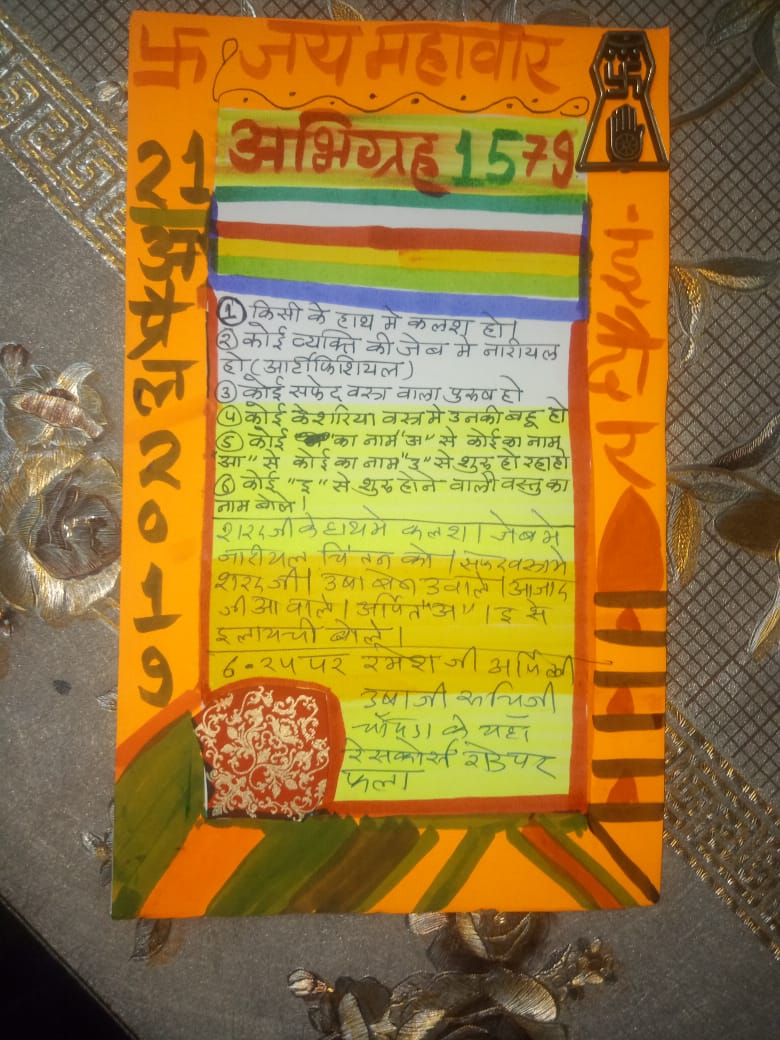 卐 जय महावीर
अभिग्रह 1579
21 अप्रैल 2019
① किसी के हाथ मे कलश हो।
② कोई व्यक्ति की जेब मे नारीयल
हो (आर्टीफिशियल)
③ कोई सफेद वस्त्र वाला पुरुष हो
④ कोई केशरिया वस्त्र मे उनकी बहू हो
⑤ कोई का नाम "अ" से कोई का नाम
"आ" से कोई का नाम "उ" से शुरु हो रहा हो
⑥ कोई "इ" से शुरु होने वाली वस्तु का
नाम बोले।
शरद जी के हाथ मे कलश। जेब मे
नारीयल चिंतन को। सफेद वस्त्र मे
शरद जी। उषा बेन उ वाले। आजाद
जी आ वाले। अर्पित "अ"। इ से
इलायची बोले।
6.25 पर रमेश जी
उषा जी रुचि जी
चौपडा के यहाँ
रेसकोर्स रोड पर
फला